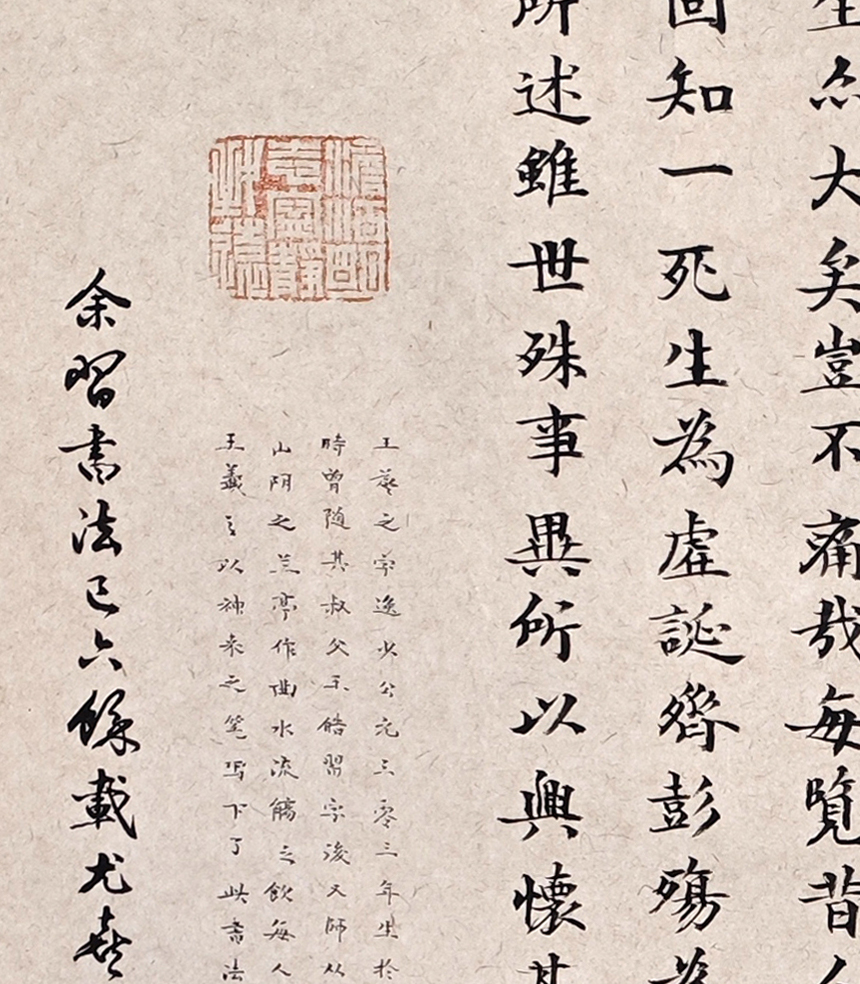 生亦大矣豈不痛哉每覽昔人
固知一死生為虛誕齊彭殤為
所述雖世殊事異所以興懷其
王羲之字逸少公元三零三年生於
時曾随其叔父王 習字後又師从
山阴之兰亭作曲水流觴之飲每人
王羲之以神来之笔写下了此書法
余習書法已六餘載尤喜